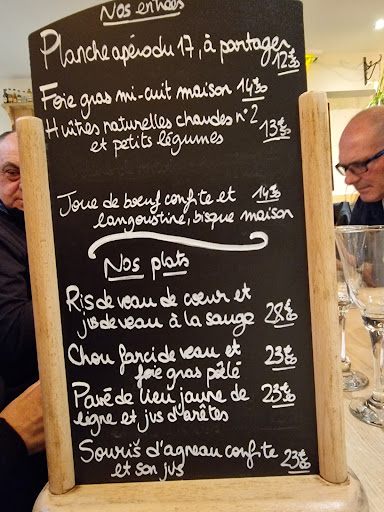 Nos entrées
Planche apéro du 17, à partager 12€50
Foie gras mi-cuit maison 14€50
Huîtres naturelles chaudes n°2
et petits légumes 13€50
Joue de bœuf confite et 14€50
langoustine, bisque maison
Nos plats
Ris de veau de cœur et
jus de veau à la sauge 28€50
Chou farci de veau et 23€50
foie gras pôlé
Pavé de lieu jaune de 23€50
ligne et jus d'arêtes
Souris d'agneau confite 23€50
et son jus